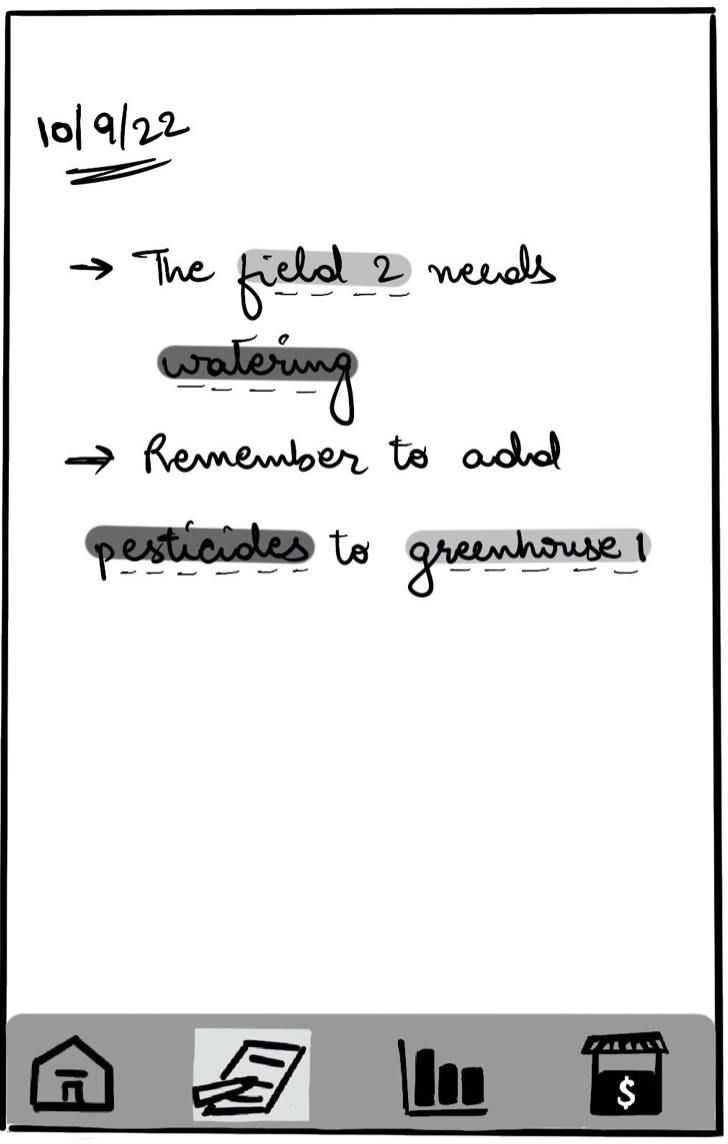 10/9/22
→ The field 2 needs
watering
→ Remember to add
pesticides to greenhouse 1
$